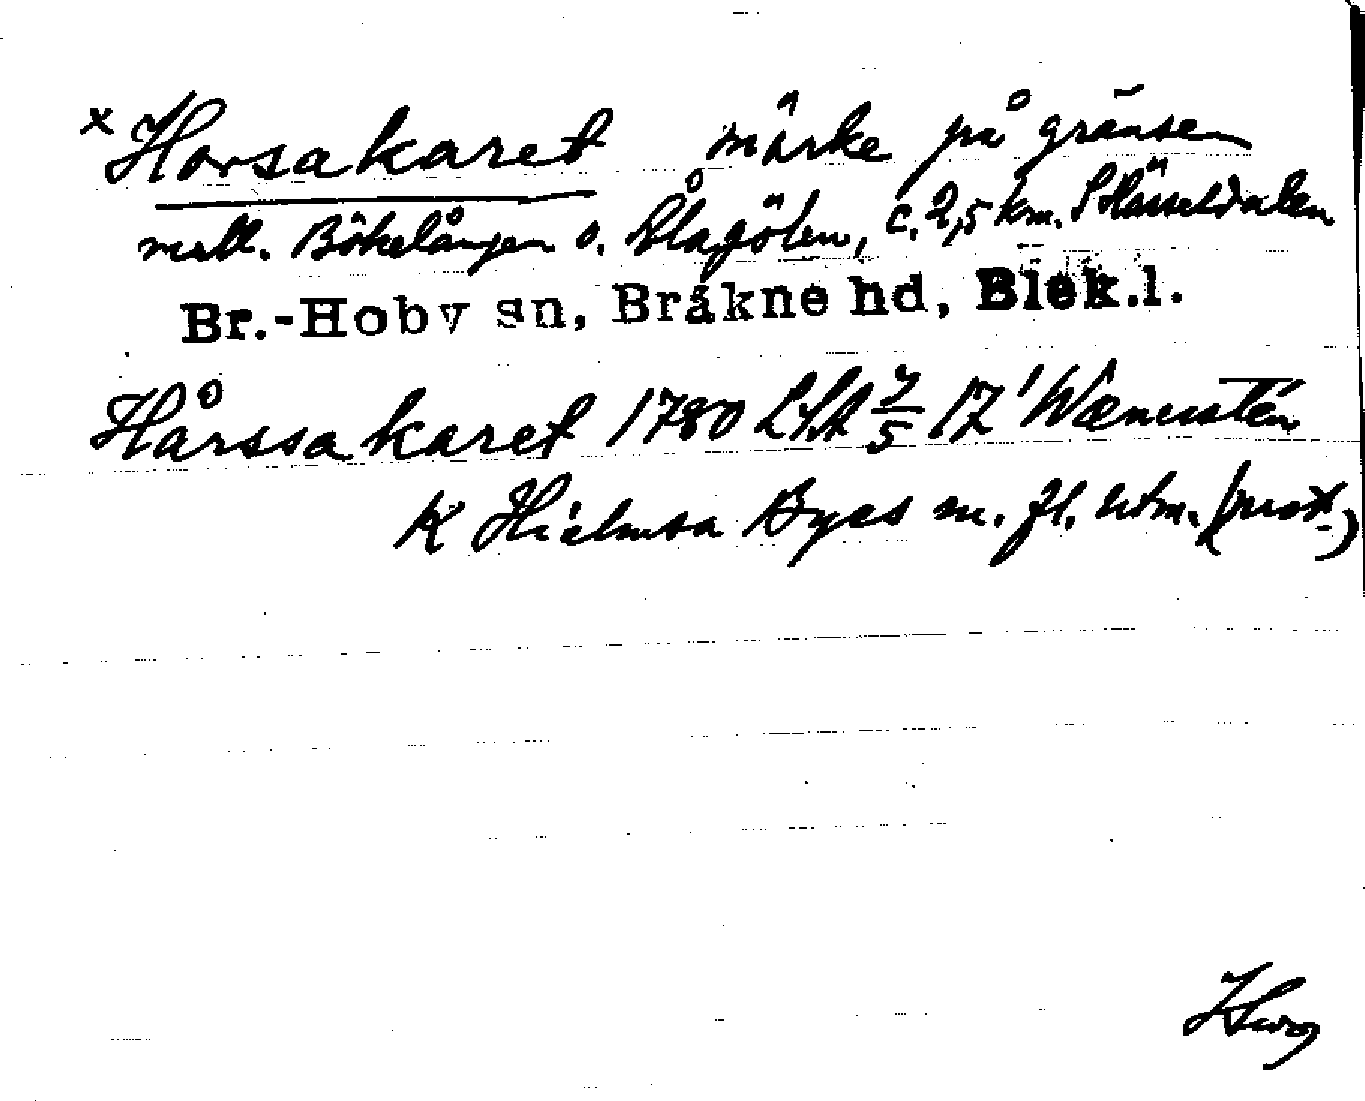 x Horsakaret märke på gränsen
mell. Bökelången o. Blågölen, c. 2,5 km. S Hässeldalen
Br.-Hoby sn, Bräkne hd, Blek.l.
Hårssakaret 1780 LSA 17
K Hielmsa Byes m. fl. utm. (prot.)